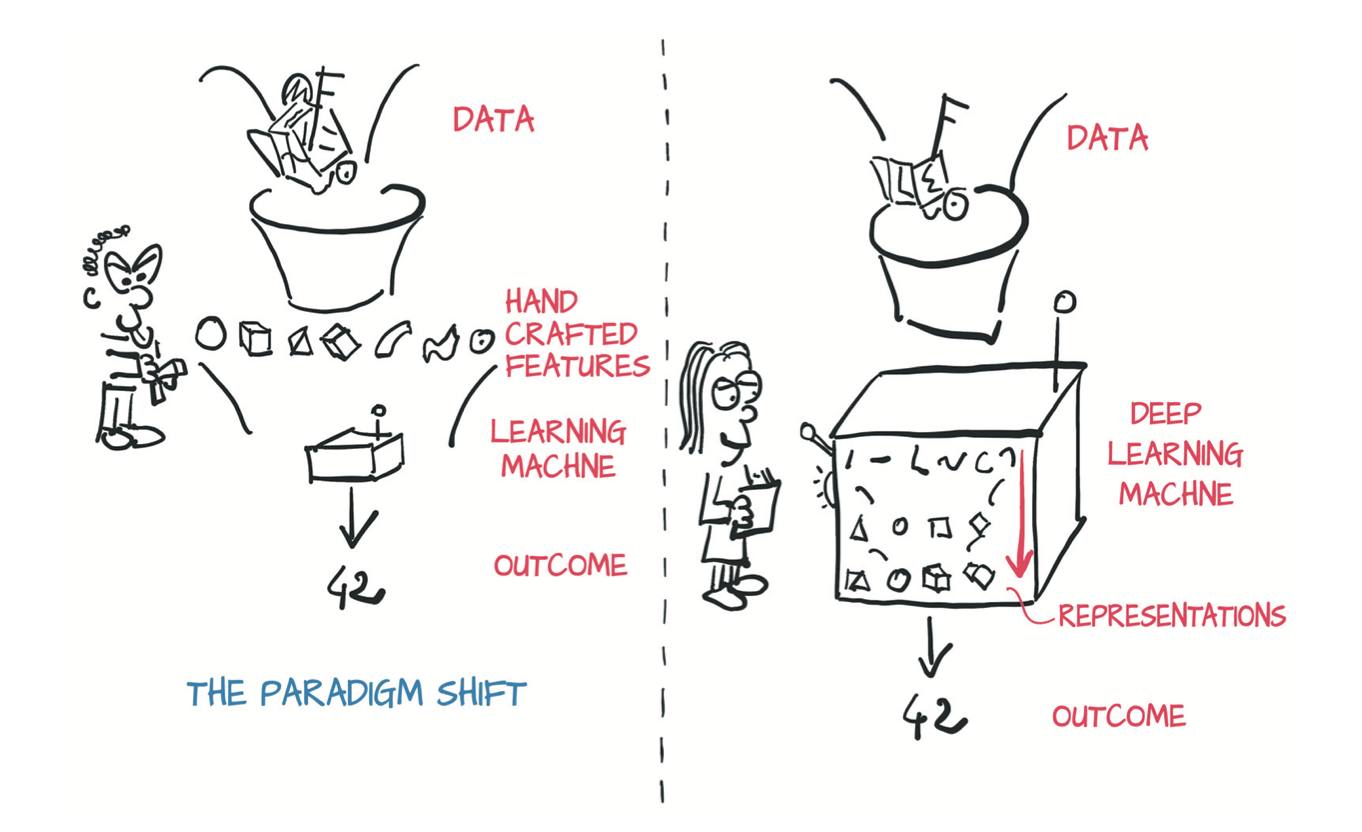 DATA
HAND
CRAFTED
FEATURES
LEARNING
MACHNE
OUTCOME
42
THE PARADIGM SHIFT
DATA
DEEP
LEARNING
MACHNE
REPRESENTATIONS
42
OUTCOME